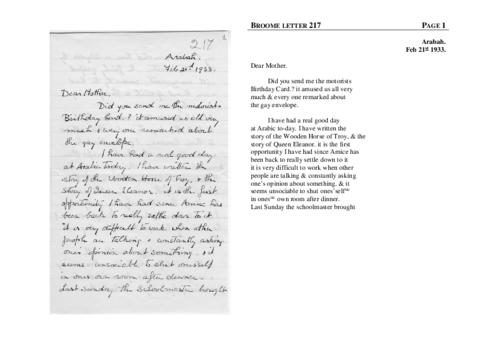 217
1
Arabah.
Feb 21st 1933.
Dear Mother.
Did you send me the motorists
Birthday Card.? it amused us all very
much & every one remarked about
the gay envelope.
I have had a real good day
at Arabic to-day. I have written the
story of the Wooden Horse of Troy, & the
story of Queen Eleanor. it is the first
opportunity I have had since Amice has
been back to really settle down to it
it is very difficult to work when other
people are talking & constantly asking
one's opinion about something. & it
seems unsociable to shut ones'self
in ones own room after dinner.
Last Sunday the schoolmaster brought
BROOME LETTER 217
PAGE 1
Arabah.
Feb 21st 1933.
Dear Mother.
Did you send me the motorists
Birthday Card.? it amused us all very
much & every one remarked about
the gay envelope.
I have had a real good day
at Arabic to-day. I have written the
story of the Wooden Horse of Troy, & the
story of Queen Eleanor. it is the first
opportunity I have had since Amice has
been back to really settle down to it
it is very difficult to work when other
people are talking & constantly asking
one's opinion about something. & it
seems unsociable to shut ones'self
in ones' own room after dinner.
Last Sunday the schoolmaster brought